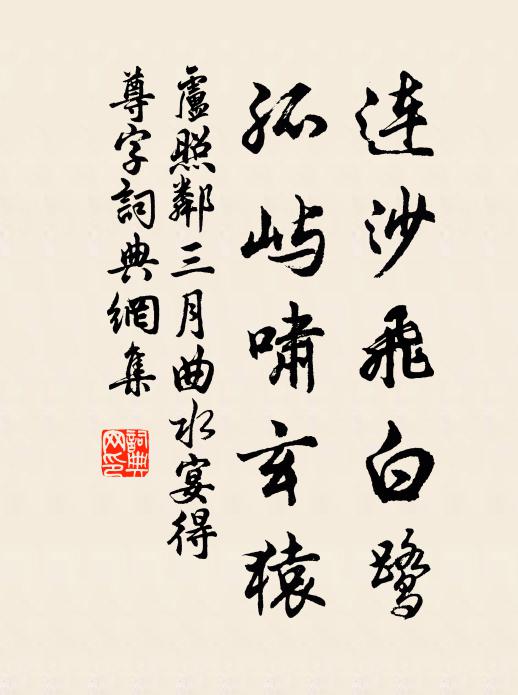 連沙飛白鷺
孤嶼嘯玄猿
盧照鄰三月曲水宴得
尊字詞典網集
詞典
网印